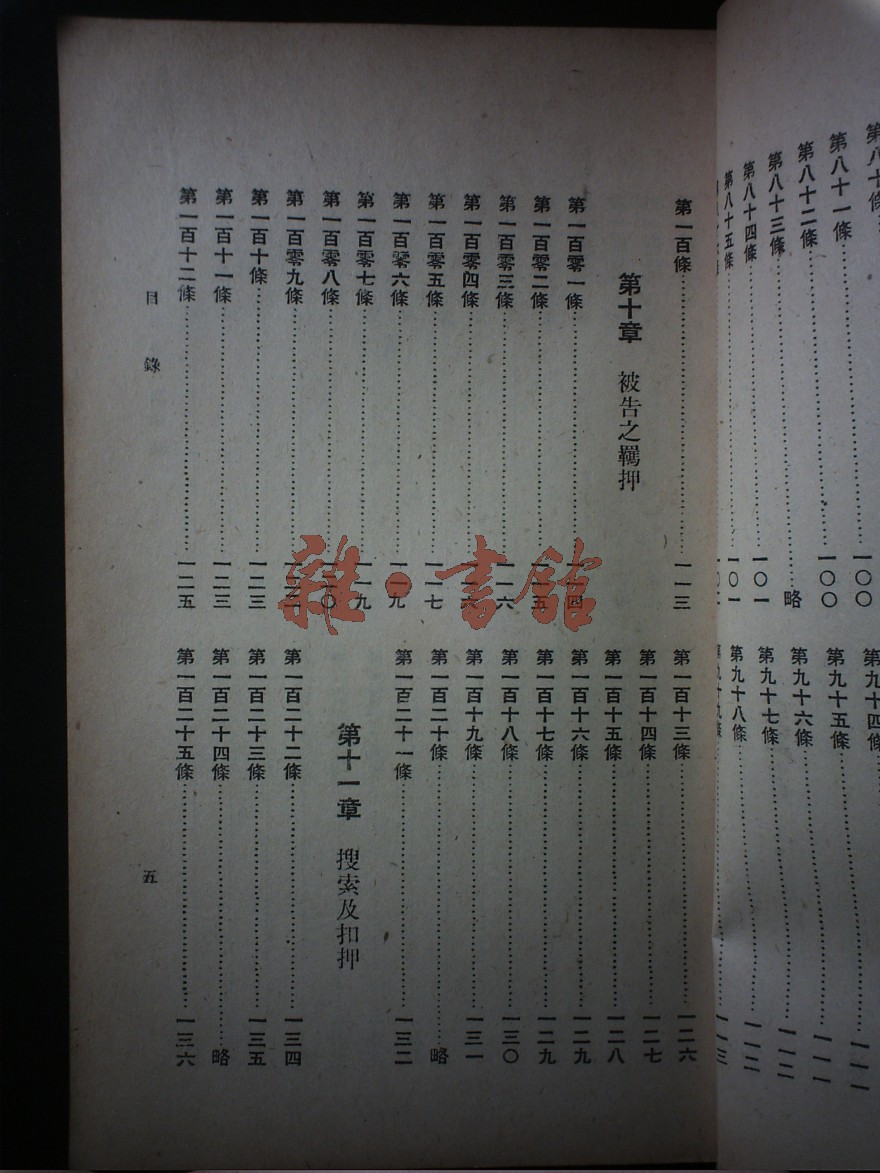 第八十條
第八十一條……一〇〇
第八十二條……一〇〇
第八十三條……略
第八十四條……一〇一
第八十五條……一〇一
第九十四條
第九十五條……一一一
第九十六條……一一一
第九十七條……一一二
第九十八條……一一二
第九十九條……一一三
第一百條……一一三
第十章 被告之羈押
第一百零一條……一一四
第一百零二條……一一五
第一百零三條……一一六
第一百零四條……一一六
第一百零五條……一一七
第一百零六條……一一九
第一百零七條……一一九
第一百零八條……一二〇
第一百零九條……一二二
第一百十條……一二三
第一百十一條……一二三
第一百十二條……一二五
第一百十三條……一二六
第一百十四條……一二七
第一百十五條……一二八
第一百十六條……一二九
第一百十七條……一二九
第一百十八條……一三〇
第一百十九條……一三一
第一百二十條……略
第一百二十一條……一三二
第十一章 搜索及扣押
第一百二十二條……一三四
第一百二十三條……一三五
第一百二十四條……略
第一百二十五條……一三六
目錄
五
雜·書館